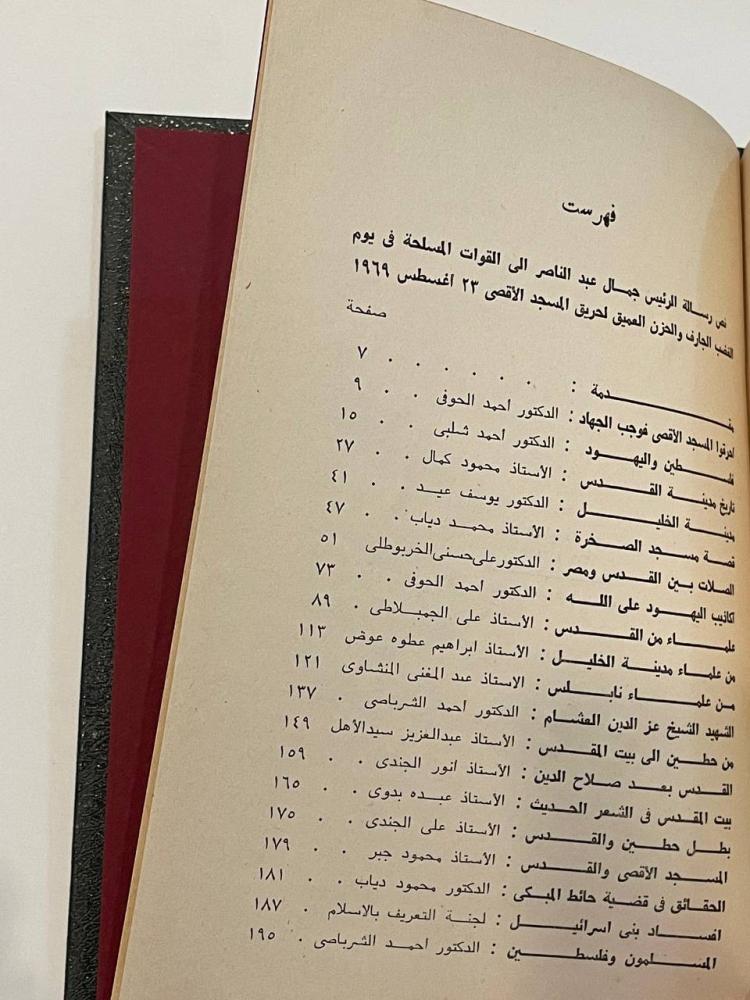 فهرست
نص رسالة الرئيس جمال عبد الناصر الى القوات المسلحة فى يوم
الغضب الجارف والحزن العميق لحريق المسجد الأقصى ٢٣ أغسطس ١٩٦٩
صفحة
مقدمة : . . . . . . ٧
احرقوا المسجد الأقصى فوجب الجهاد : الدكتور أحمد الحوفى . . ٩
فلسطين واليهود : الدكتور أحمد شلبى . . ١٥
تاريخ مدينة القدس : الأستاذ محمود كمال . . ٢٧
مدينة الخليل : الدكتور يوسف عيد . . ٤١
قصة مسجد الصخرة : الأستاذ محمد دياب . . ٤٧
الصلات بين القدس ومصر : الدكتور على حسنى الخربوطلى ٥١
أكاذيب اليهود على الله : الدكتور أحمد الحوفى . . ٧٣
علماء من القدس : الأستاذ على الجمبلاطى . ٨٩
من علماء مدينة الخليل : الأستاذ ابراهيم عطوه عوض ١١٣
من علماء نابلس : الأستاذ عبد المغنى المنشاوى ١٢١
الشهيد الشيخ عز الدين القسام : الدكتور أحمد الشرباصى . ١٣٧
من حطين الى بيت المقدس : الأستاذ عبدالعزيز سيدالأهل ١٤٩
القدس بعد صلاح الدين : الأستاذ أنور الجندى . . ١٥٩
بيت المقدس فى الشعر الحديث : الأستاذ عبده بدوى . . ١٦٥
بطل حطين والقدس : الأستاذ على الجندى . . ١٧٥
المسجد الأقصى والقدس : الأستاذ محمود جبر . . ١٧٩
الحقائق فى قضية حائط المبكى : الدكتور محمود دياب . . ١٨١
افساد بنى اسرائيل : لجنة التعريف بالاسلام . ١٨٧
المسلمون وفلسطين : الدكتور أحمد الشرباصى . ١٩٥